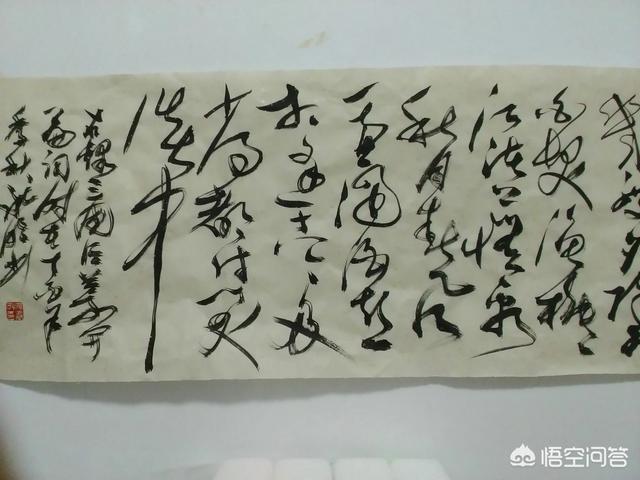 几度夕阳红
白发渔樵
江渚上惯看
秋月春风
一壶浊酒喜
相逢古今多
少事都付笑
谈中
右录三国演义开
篇词时在丁亥年
季秋书
悟空问答